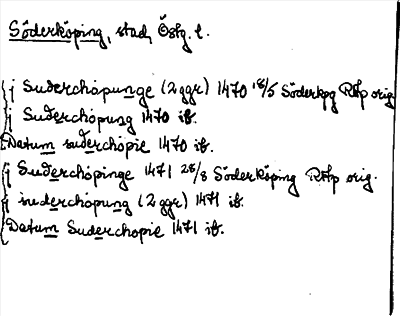 Söderköping, stad, Östg. l.
j Suderchøpunge (2 ggr) 1470 18/5 Söderkpg RAp orig
j Suderchøpung 1470 ib.
Datum suderchøpie 1470 ib.
j Suderchøpinge 1471 28/8 Söderköping RAp orig.
j suderchøpung (2 ggr) 1471 ib.
Datum Suderchopie 1471 ib.